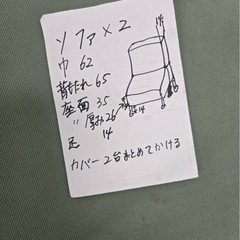 ソファ×2
巾 62
背もたれ 65
座面 35
〃 厚み26
足 14
カバー2台まとめてかける
14
6×14
6
6